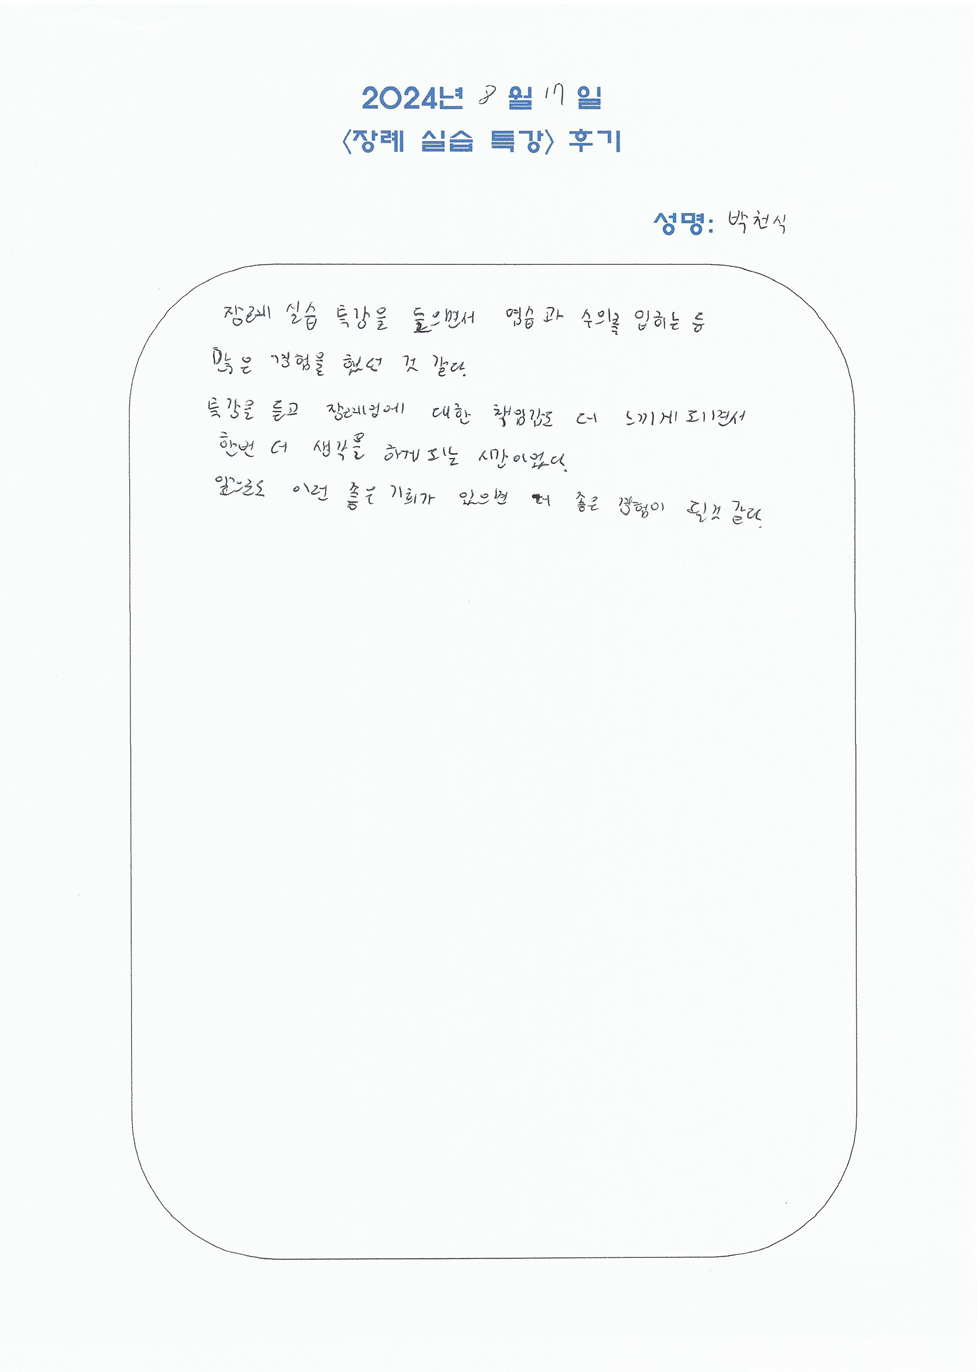 2024년 8월 17일
<장례 실습 특강> 후기
성명: 박천식
장례 실습 특강을 들으면서 염습과 수의복 입히는 등
많은 경험을 했던 것 같다.
특강을 듣고 장례업에 대한 책임감도 더 느끼게 되면서
한번 더 생각을 하게 되는 시간이었다.
앞으로도 이런 좋은 기회가 있으면 더 좋은 경험이 될것 같다.